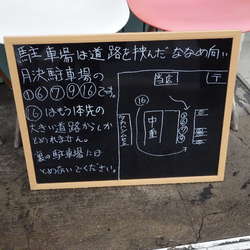 駐車場は道路を挟んだななめ向い
月決駐車場の
①⑥⑦⑨⑯です。
⑯はもう1本先の
大きい道路からしか
とめれません。
の駐車場に
とめないでください。
当店
〒
⑯
中華
①
⑥
⑦
⑨